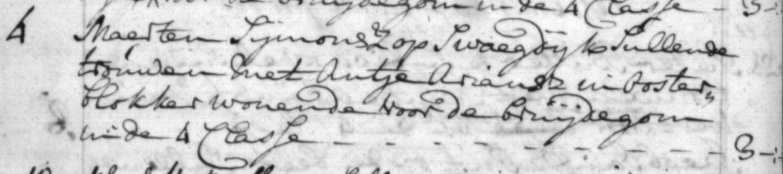 de bruijdegom in de 4 Classe - 3-:
4 Maerten Sijmonsz op Swaegdijk Sullende
trouwen met Antje Ariansz in ooster„
blokker wonende voor de bruijdegom
in de 4 Classe - - - - - - - - 3-: